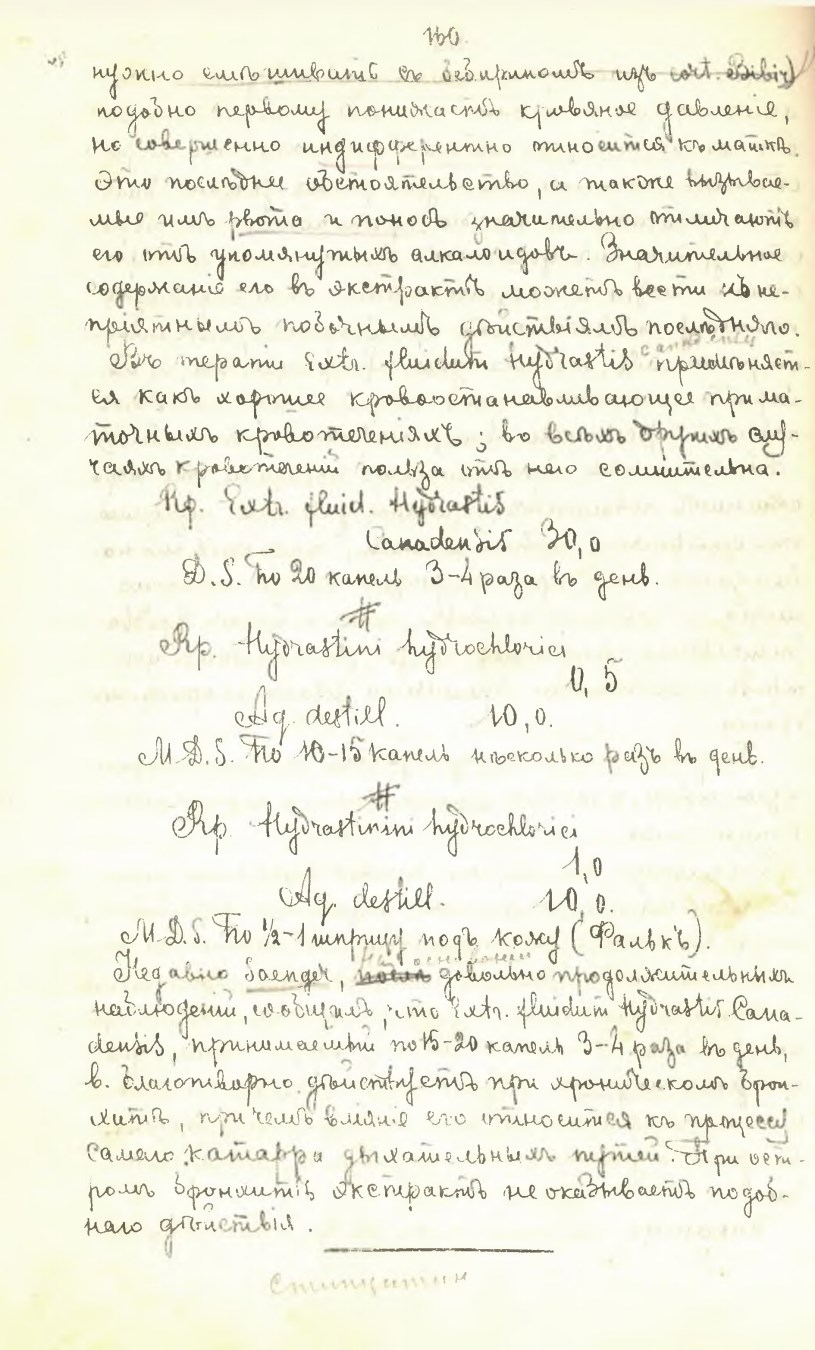 160.
нужно смѣшивать съ бебириномъ изъ cort. Bibir.)
подобно первому понижаетъ кровяное давленіе,
но совершенно индифферентно относится къ маткѣ.
Это послѣднее обстоятельство, а также вызывае-
мые имъ рвота и поносъ значительно отличаютъ
его отъ упомянутыхъ алкалоидовъ. Значительное
содержаніе его въ экстрактѣ можетъ вести къ не-
пріятнымъ побочнымъ дѣйствіямъ послѣдняго.
canadensis
Въ терапіи Extr. fluidum Hydrastis примѣняет-
ся какъ хорошее кровоостанавливающее при ма-
точныхъ кровотеченіяхъ; во всѣхъ другихъ слу-
чаяхъ кровотеченій польза отъ него сомнительна.
Rp. Extr. fluid. Hydrastis
Canadensis 30,0
D.S. По 20 капель 3-4 раза въ день.
#
Rp. Hydrastini hydrochlorici
0,5
Aq. destill. 10,0.
M.D.S. По 10-15 капель нѣсколько разъ въ день.
#
Rp Hydrastinini hydrochlorici
1,0
Aq. destill. 10,0.
M.D.S. По ½-1 шприцу подъ кожу (Фалькъ).
на основаніи
Недавно Saenger, довольно продолжительныхъ
наблюденій, сообщилъ, что Extr. fluidum Hydrastis Cana-
densis, принимаемый по 15-20 капель 3-4 раза въ день,
в. благотворно дѣйствуетъ при хроническомъ брон-
хитѣ, при чемъ вліяніе его относится къ процессу
самого катарра дыхательныхъ путей. При ост-
ромъ бронхитѣ экстрактъ не оказываетъ подоб-
наго дѣйствія.
Стиптицин